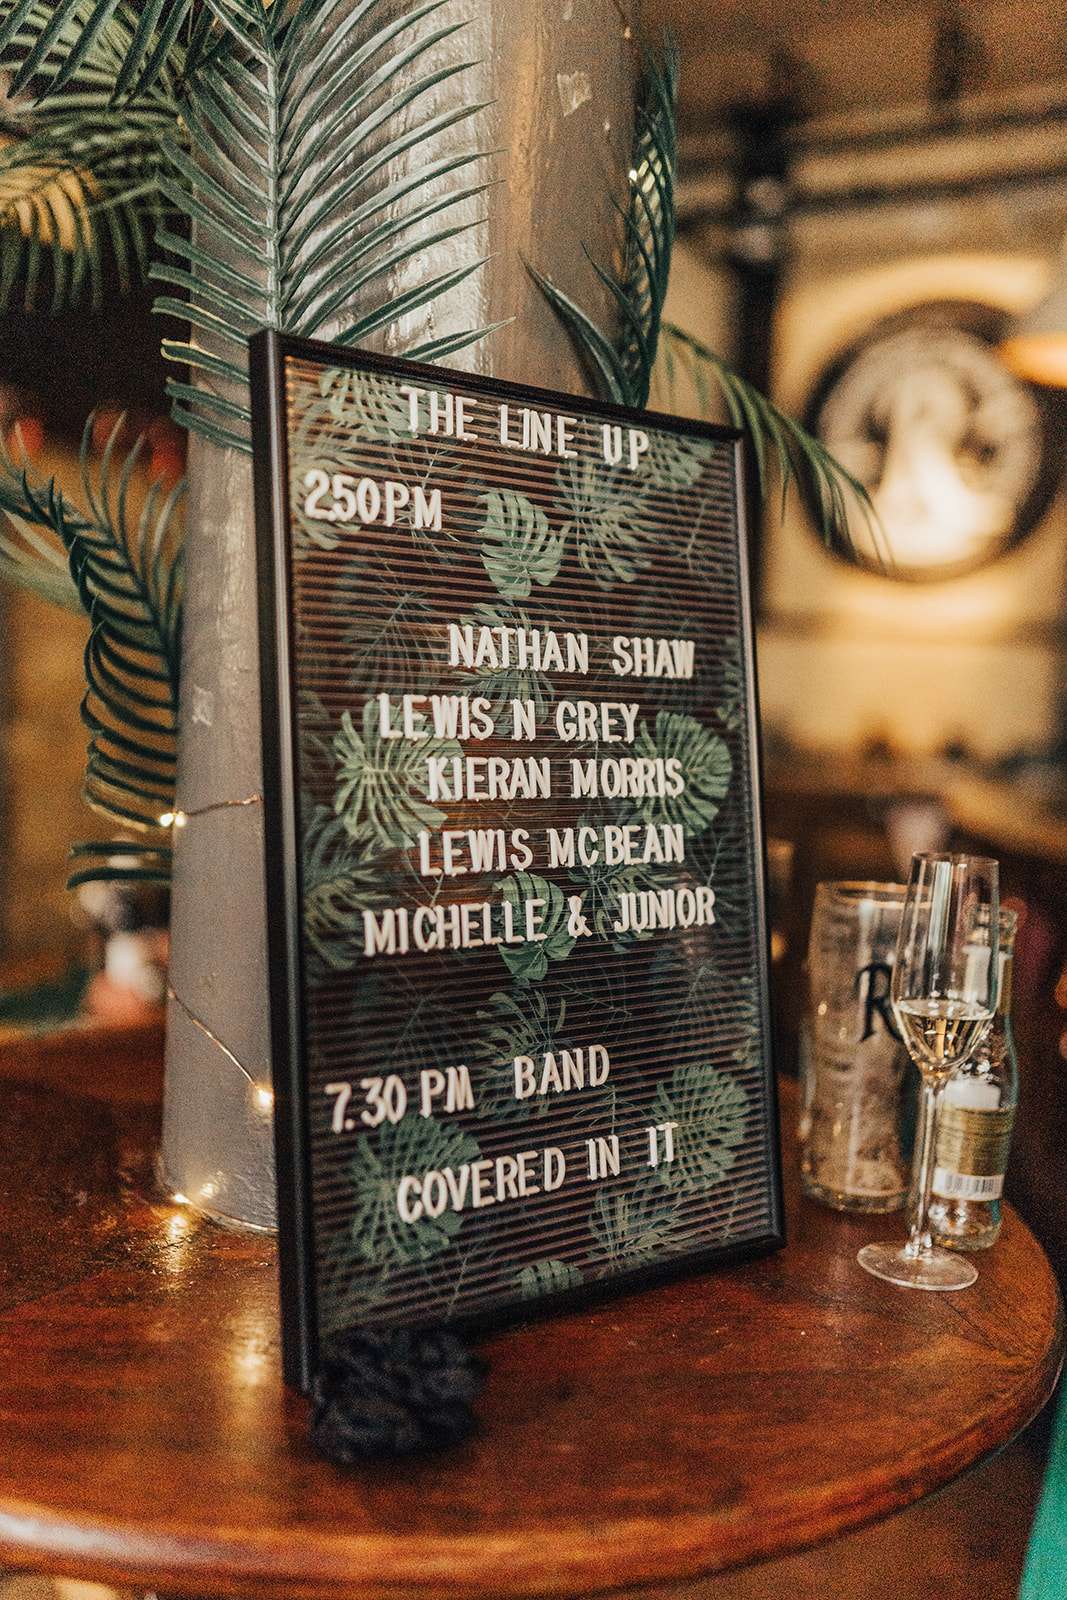 THE LINE UP
2.50PM
NATHAN SHAW
LEWIS N GREY
KIERAN MORRIS
LEWIS MCBEAN
MICHELLE & JUNIOR
7.30 PM BAND
COVERED IN IT
R